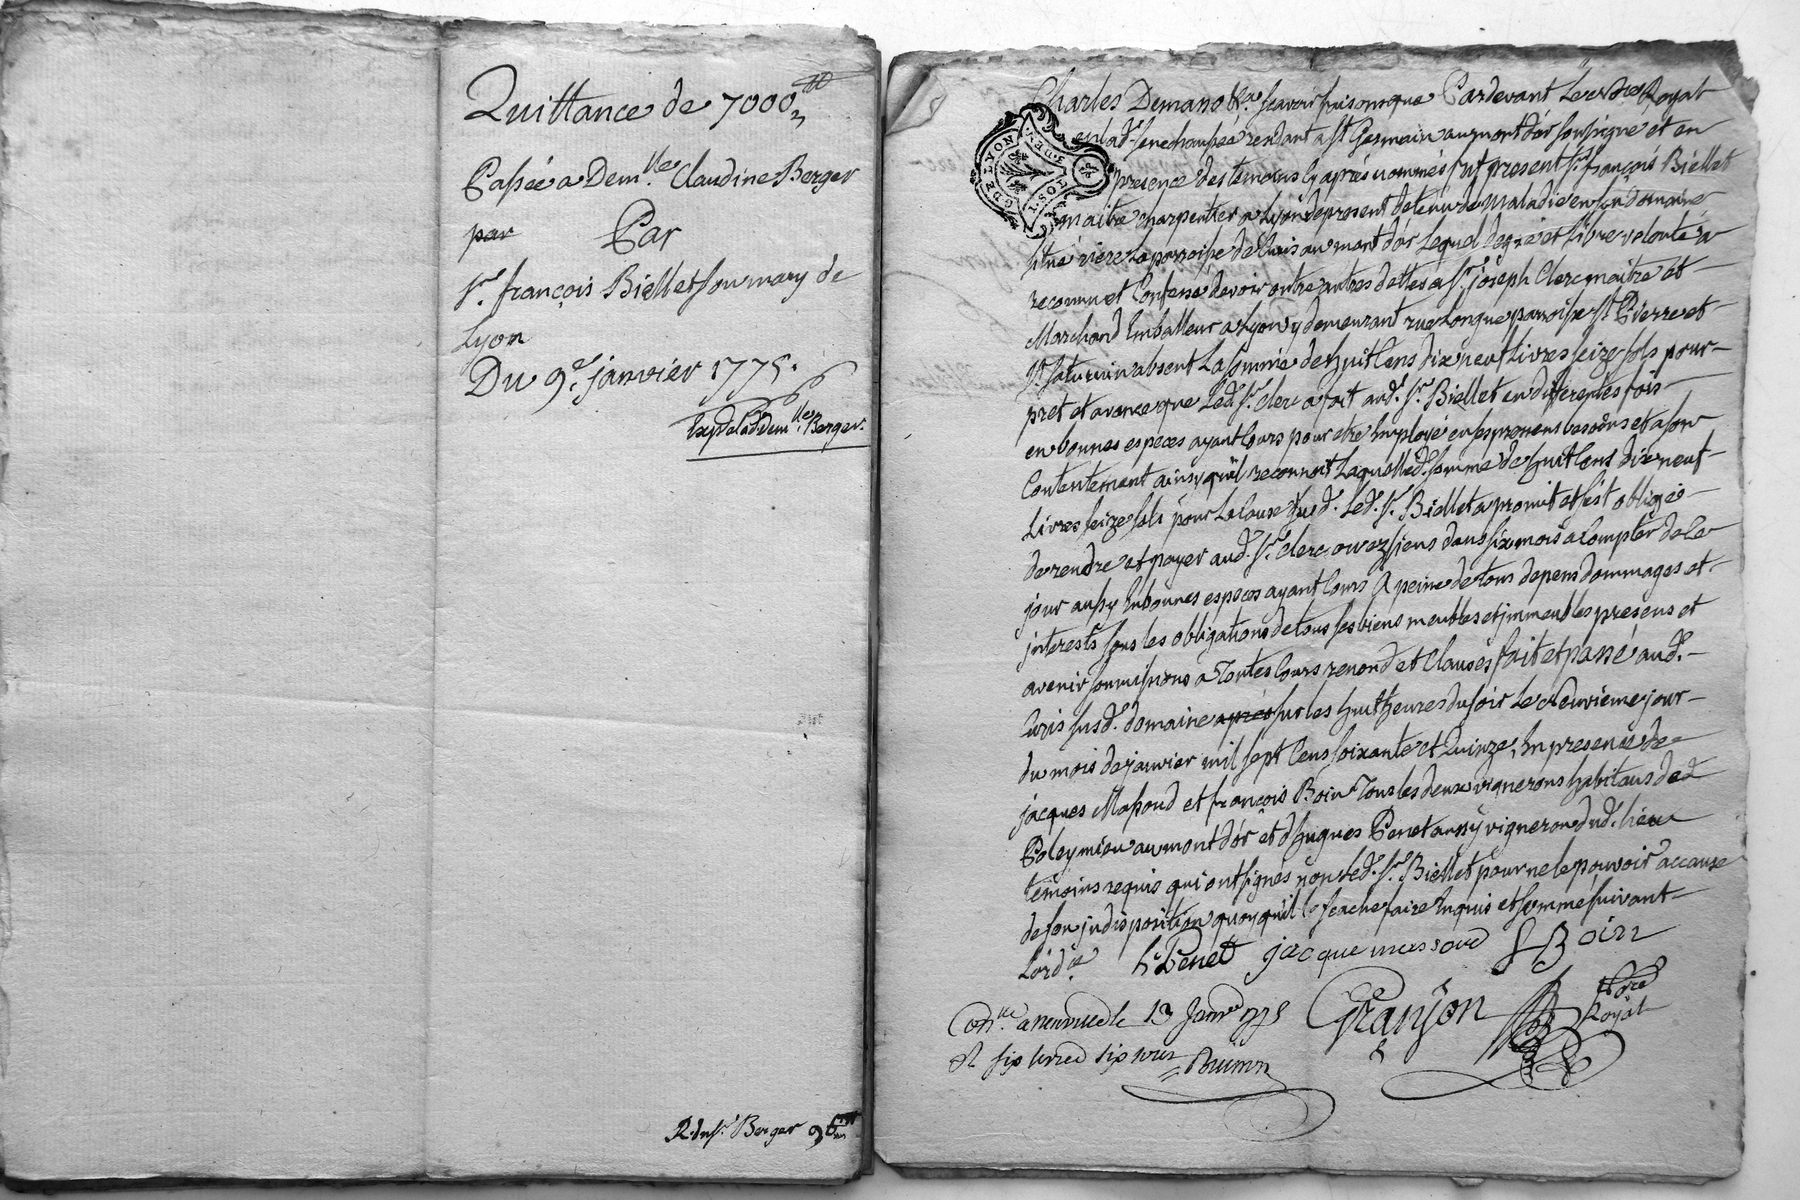 Quittance de 7000
Passée a Dem.lle Claudine Berger
par Par
Sr. françois Biellet son mary de
Lyon
Du 9e. janvier 1775.
Exp de lad. Dem.lle Berger.
R. du Sr. Berger
Charles Demano scavoir faisons que Pardevant Le Nore Royal
en lad. senechaussée residant a St. Germain au mont d'or soussigné et en
presence des temoins cy aprés nommés fut present Sr. françois Biellet
maitre charpentier a Lyon de present detenu de maladie en son domaine
situé riere La parroisse de Curis au mont d'or Lequel de gré et libre volonté a
reconnu et Confessé devoir entre autres dettes a Sr. joseph Clerc maitre et
Marchand Emballeur a Lyon y demeurant rue Longue paroisse St. Pierre et
St. saturnin absent La somme de huit Cens dix neuf Livres seize sols pour
pret et avance que Led. Sr. Clerc a fait aud. Sr. Biellet en differentes fois
en bonnes especes ayant Cours pour etre Employé en ses pressens besoins et a son
Contentement ainsy qu'il reconnoit Laquelle d. somme de huit Cens dix neuf
Livres seize sols pour La Cause susd. Led. Sr. Biellet a promit et s'est obligé
de rendre et payer aud. Sr. Clerc ou ez siens dans six mois a Compter de Ce
jour aussy En bonnes especes ayant Cours A peine de tous depens dommages et
interests sous les obligations de tous ses biens meubles et immeubles presens et
avenir soumissions a Toutes Cours renond. et Clauses fait et passé aud.
Curis susd. domaine aprés sur les huit heures du soir Le Neuvieme jour
du mois de janvier mil sept Cens soixante et Quinze, En presence de
jacques Massoud et françois Boin Tous les deux vignerons habitans de
Poleymieu au mont d'or et d'hugues Penet aussy vigneron dud. lieu
temoins requis qui ont signés non Led. Sr. Biellet pour ne le pouvoir accause
de son indisposition quoy qu'il le scache faire Enquis et sommé suivant
L'ord.ce h. Penet jacque massoud f Boin
Conlle. a neuville le 13 Janvr 1775 Granjon Nore
R. six livres six sous Royal